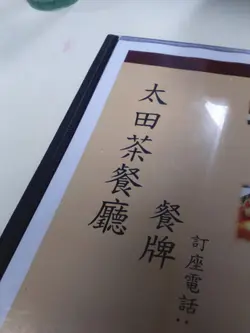 太田茶餐廳
餐牌
訂座電話: